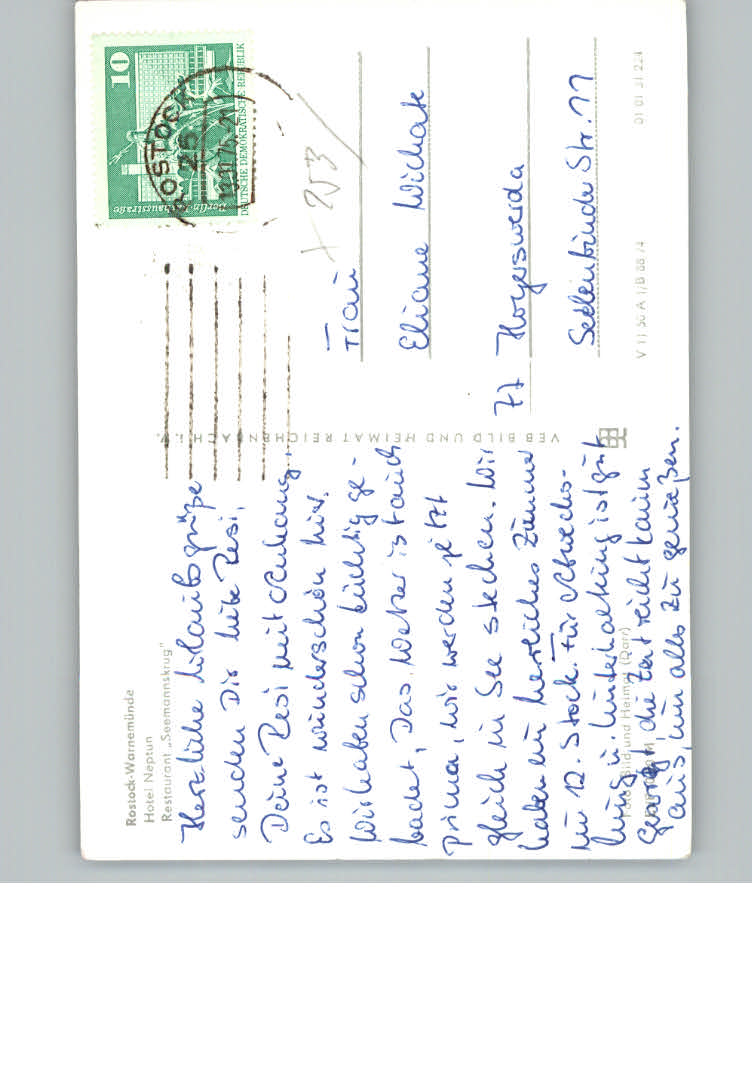 Rostock-Warnemünde
Hotel Neptun
Restaurant „Seemannskrug"
Herzliche Urlaubsgrüße
senden Dir liebe Resi,
Deine Resi mit Anhang.
Es ist wunderschön hier.
Wir haben schon tüchtig ge-
badet, Das Wetter ist auch
prima, wir werden jetzt
gleich in See stechen. Wir
haben ein herrliches Zimmer
im 12. Stock. Für Abwechs-
lung u. Unterhaltung ist gut
gesorgt, die Zeit reicht kaum
aus, um alles zu genießen.
Foto: Bild und Heimat (Darr)
VEB BILD UND HEIMAT REICHENBACH i. V.
10
DEUTSCHE DEMOKRATISCHE REPUBLIK
Berlin
ROSTOCK
25
X 253
Frau
Eliane
77 Hoyerswerda
Str. 11
V 11 50 A 1/B 88/74
01 01 31 224